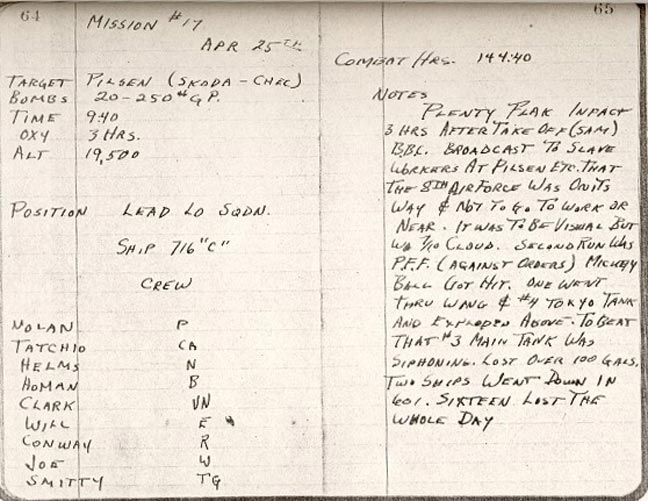 64
MISSION #17
APR 25TH
TARGET PILSEN (SKODA-CHEC)
BOMBS 20-250# G.P.
TIME 9:40
OXY 3 HRS.
ALT 19,500
POSITION LEAD LO SQDN.
SHIP 716 "C"
CREW
NOLAN P
TATCHIO CA
HELMS N
HOMAN B
CLARK VN
WILL E
CONWAY R
JOE W
SMITTY TG
65
COMBAT HRS. 144:40
NOTES
PLENTY FLAK INFACT
3 HRS AFTER TAKE OFF (5AM)
B.B.C. BROADCAST TO SLAVE
WORKERS AT PILSEN ETC. THAT
THE 8TH AIR FORCE WAS ON ITS
WAY & NOT TO GO TO WORK OR
NEAR. IT WAS TO BE VISUAL BUT
7/10 CLOUD. SECOND RUN WAS
P.F.F. (AGAINST ORDERS) MICKEY
BALL GOT HIT. ONE WENT
THRU WING & #4 TOKYO TANK
AND EXPLODED ABOVE. TO BEAT
THAT #3 MAIN TANK WAS
SIPHONING. LOST OVER 100 GALS.
TWO SHIPS WENT DOWN IN
601. SIXTEEN LOST THE
WHOLE DAY